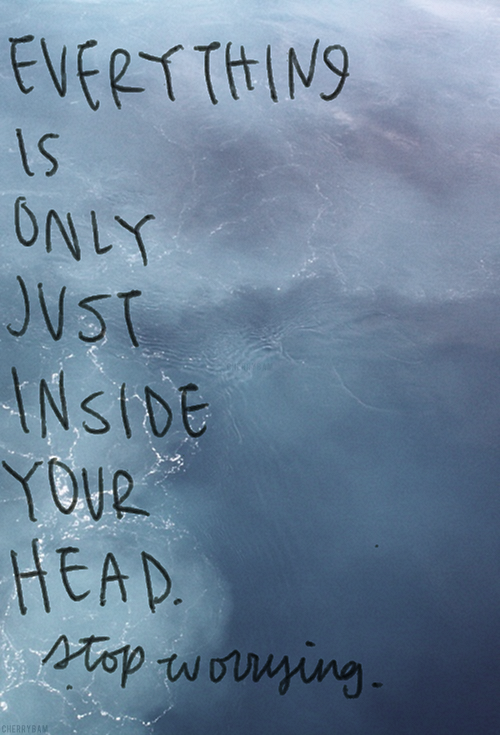 EVERYTHING
IS
ONLY
JUST
INSIDE
YOUR
HEAD.
stop worrying.
CHERRYBAM